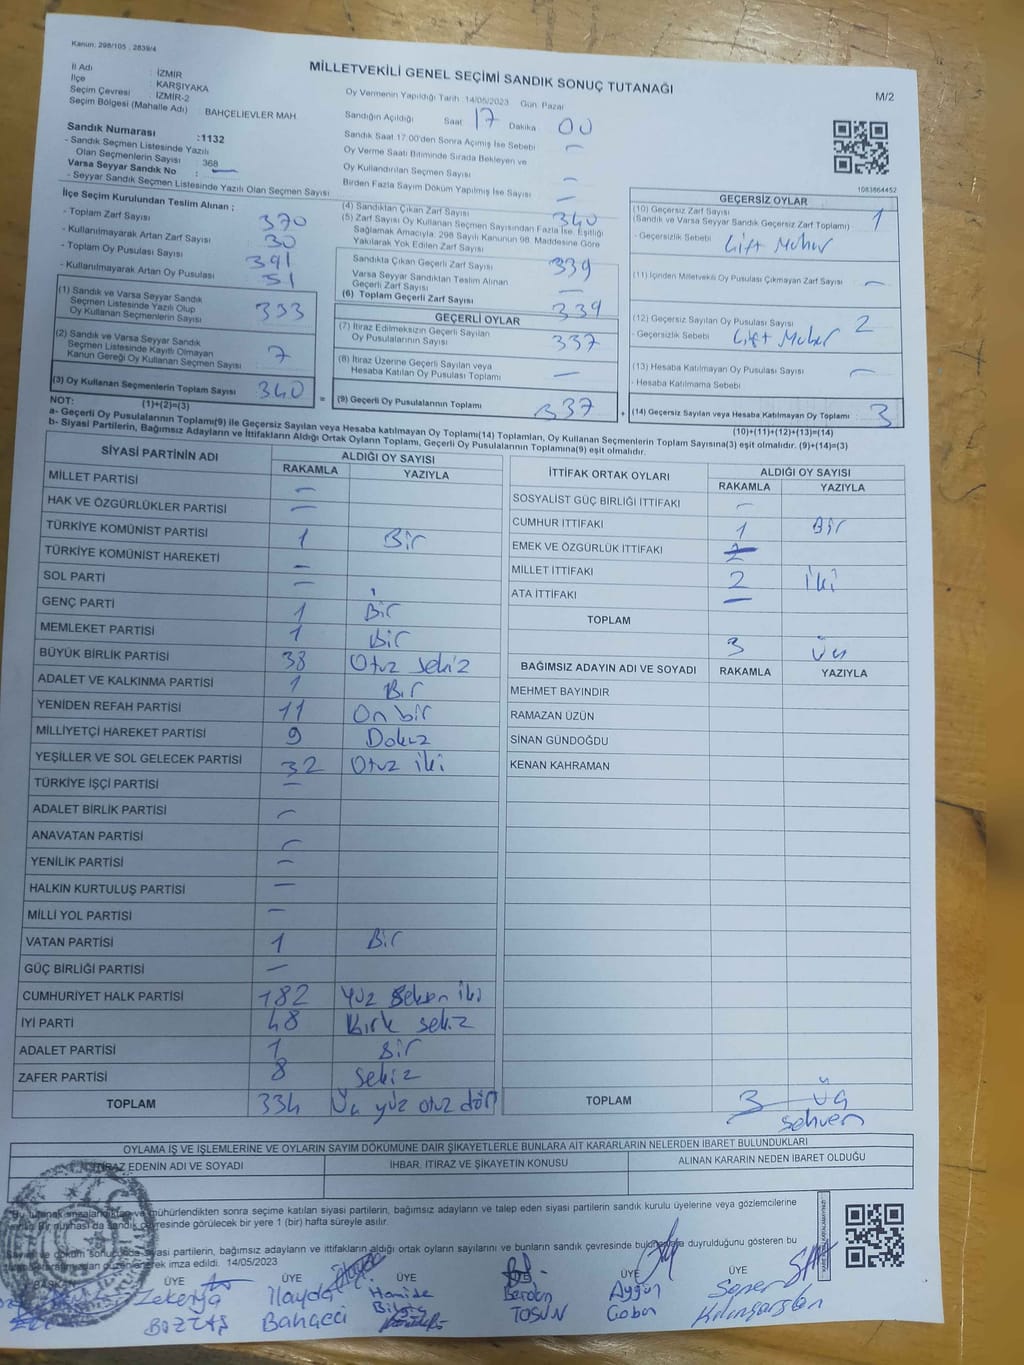 Kanun: 298/105 , 2839/4
MİLLETVEKİLİ GENEL SEÇİMİ SANDIK SONUÇ TUTANAĞI
M/2
İl Adı : İZMİR
İlçe : KARŞIYAKA
Seçim Çevresi : İZMİR-2
Seçim Bölgesi (Mahalle Adı) BAHÇELİEVLER MAH
Sandık Numarası :1132
- Sandık Seçmen Listesinde Yazılı
Olan Seçmenlerin Sayısı : 368
Varsa Seyyar Sandık No : —
- Seyyar Sandık Seçmen Listesinde Yazılı Olan Seçmen Sayısı
Oy Vermenin Yapıldığı Tarih 14/05/2023 Gün: Pazar
Sandığın Açıldığı Saat 17 Dakika 00
Sandık Saat 17.00'den Sonra Açılmış İse Sebebi —
Oy Verme Saati Bitiminde Sırada Bekleyen ve
Oy Kullandırılan Seçmen Sayısı —
Birden Fazla Sayım Döküm Yapılmış İse Sayısı —
1083864452
İlçe Seçim Kurulundan Teslim Alınan ;
- Toplam Zarf Sayısı 370
- Kullanılmayarak Artan Zarf Sayısı 30
- Toplam Oy Pusulası Sayısı 391
- Kullanılmayarak Artan Oy Pusulası 51
(1) Sandık ve Varsa Seyyar Sandık
Seçmen Listesinde Yazılı Olup
Oy Kullanan Seçmenlerin Sayısı 333
(2) Sandık ve Varsa Seyyar Sandık
Seçmen Listesinde Kayıtlı Olmayan
Kanun Gereği Oy Kullanan Seçmen Sayısı 7
(3) Oy Kullanan Seçmenlerin Toplam Sayısı 340
(4) Sandıktan Çıkan Zarf Sayısı 340
(5) Zarf Sayısı Oy Kullanan Seçmen Sayısından Fazla İse, Eşitliği
Sağlamak Amacıyla, 298 Sayılı Kanunun 98. Maddesine Göre
Yakılarak Yok Edilen Zarf Sayısı
Sandıkta Çıkan Geçerli Zarf Sayısı 339
Varsa Seyyar Sandıktan Teslim Alınan
Geçerli Zarf Sayısı —
(6) Toplam Geçerli Zarf Sayısı 339
GEÇERLİ OYLAR
(7) İtiraz Edilmeksizin Geçerli Sayılan
Oy Pusulalarının Sayısı 337
(8) İtiraz Üzerine Geçerli Sayılan veya
Hesaba Katılan Oy Pusulası Toplamı —
= (9) Geçerli Oy Pusulalarının Toplamı 337
GEÇERSİZ OYLAR
(10) Geçersiz Zarf Sayısı 1
(Sandık ve Varsa Seyyar Sandık Geçersiz Zarf Toplamı)
- Geçersizlik Sebebi Çift Mühür
(11) İçinden Milletvekili Oy Pusulası Çıkmayan Zarf Sayısı —
(12) Geçersiz Sayılan Oy Pusulası Sayısı 2
- Geçersizlik Sebebi Çift Mühür
(13) Hesaba Katılmayan Oy Pusulası Sayısı —
- Hesaba Katılmama Sebebi
+ (14) Geçersiz Sayılan veya Hesaba Katılmayan Oy Toplamı : 3
NOT: (1)+(2)=(3)
(10)+(11)+(12)+(13)=(14)
a- Geçerli Oy Pusulalarının Toplamı(9) ile Geçersiz Sayılan veya Hesaba Katılmayan Oy Toplamı(14) Toplamları, Oy Kullanan Seçmenlerin Toplam Sayısına(3) eşit olmalıdır. (9)+(14)=(3)
b- Siyasi Partilerin, Bağımsız Adayların ve İttifakların Aldığı Ortak Oyların Toplamı, Geçerli Oy Pusulalarının Toplamına(9) eşit olmalıdır.
SİYASİ PARTİNİN ADI ALDIĞI OY SAYISI
RAKAMLA YAZIYLA
MİLLET PARTİSİ —
HAK VE ÖZGÜRLÜKLER PARTİSİ —
TÜRKİYE KOMÜNİST PARTİSİ 1 Bir
TÜRKİYE KOMÜNİST HAREKETİ —
SOL PARTİ —
GENÇ PARTİ 1 Bir
MEMLEKET PARTİSİ 1 Bir
BÜYÜK BİRLİK PARTİSİ 38 Otuz sekiz
ADALET VE KALKINMA PARTİSİ 1 Bir
YENİDEN REFAH PARTİSİ 11 On bir
MİLLİYETÇİ HAREKET PARTİSİ 9 Dokuz
YEŞİLLER VE SOL GELECEK PARTİSİ 32 Otuz iki
TÜRKİYE İŞÇİ PARTİSİ —
ADALET BİRLİK PARTİSİ —
ANAVATAN PARTİSİ —
YENİLİK PARTİSİ —
HALKIN KURTULUŞ PARTİSİ —
MİLLİ YOL PARTİSİ —
VATAN PARTİSİ 1 Bir
GÜÇ BİRLİĞİ PARTİSİ —
CUMHURİYET HALK PARTİSİ 182 Yüz seksen iki
İYİ PARTİ 48 Kırk sekiz
ADALET PARTİSİ 1 Bir
ZAFER PARTİSİ 8 Sekiz
TOPLAM 334 Üç yüz otuz dört
İTTİFAK ORTAK OYLARI ALDIĞI OY SAYISI
RAKAMLA YAZIYLA
SOSYALİST GÜÇ BİRLİĞİ İTTİFAKI —
CUMHUR İTTİFAKI 1 Bir
EMEK VE ÖZGÜRLÜK İTTİFAKI
MİLLET İTTİFAKI 2 iki
ATA İTTİFAKI —
TOPLAM 3 Üç
BAĞIMSIZ ADAYIN ADI VE SOYADI RAKAMLA YAZIYLA
MEHMET BAYINDIR
RAMAZAN ÜZÜN
SİNAN GÜNDOĞDU
KENAN KAHRAMAN
TOPLAM 3 Üç
sehven
OYLAMA İŞ VE İŞLEMLERİNE VE OYLARIN SAYIM DÖKÜMÜNE DAİR ŞİKAYETLERLE BUNLARA AİT KARARLARIN NELERDEN İBARET BULUNDUKLARI
İTİRAZ EDENİN ADI VE SOYADI İHBAR, İTİRAZ VE ŞİKAYETİN KONUSU ALINAN KARARIN NEDEN İBARET OLDUĞU
Bu tutanak imzalandıktan ve mühürlendikten sonra seçime katılan siyasi partilerin, bağımsız adayların ve talep eden siyasi partilerin sandık kurulu üyelerine veya gözlemcilerine
bir nüshası da sandık çevresinde görülecek bir yere 1 (bir) hafta süreyle asılır.
siyasi partilerin, bağımsız adayların ve ittifakların aldığı ortak oyların sayılarını ve bunların sandık çevresinde duyrulduğunu gösteren bu
imza edildi. 14/05/2023
BAŞKAN ÜYE ÜYE ÜYE ÜYE ÜYE
Zekeriya İlayda Hamide Berdan Aygün Soner
BOZTAŞ Bahçeci Bilgiç TOSUN Çoban Kılınçarslan